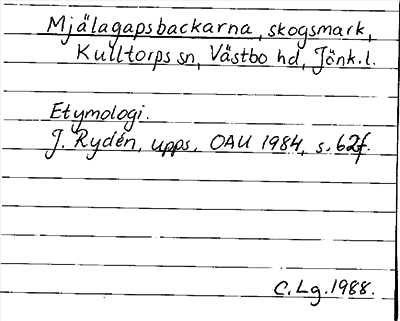 Mjälagapsbackarna, skogsmark,
Kulltorps sn, Västbo hd, Jönk.l.
Etymologi.
J. Rydén, upps. OAU 1984, s. 62f.
C. Lg. 1988.